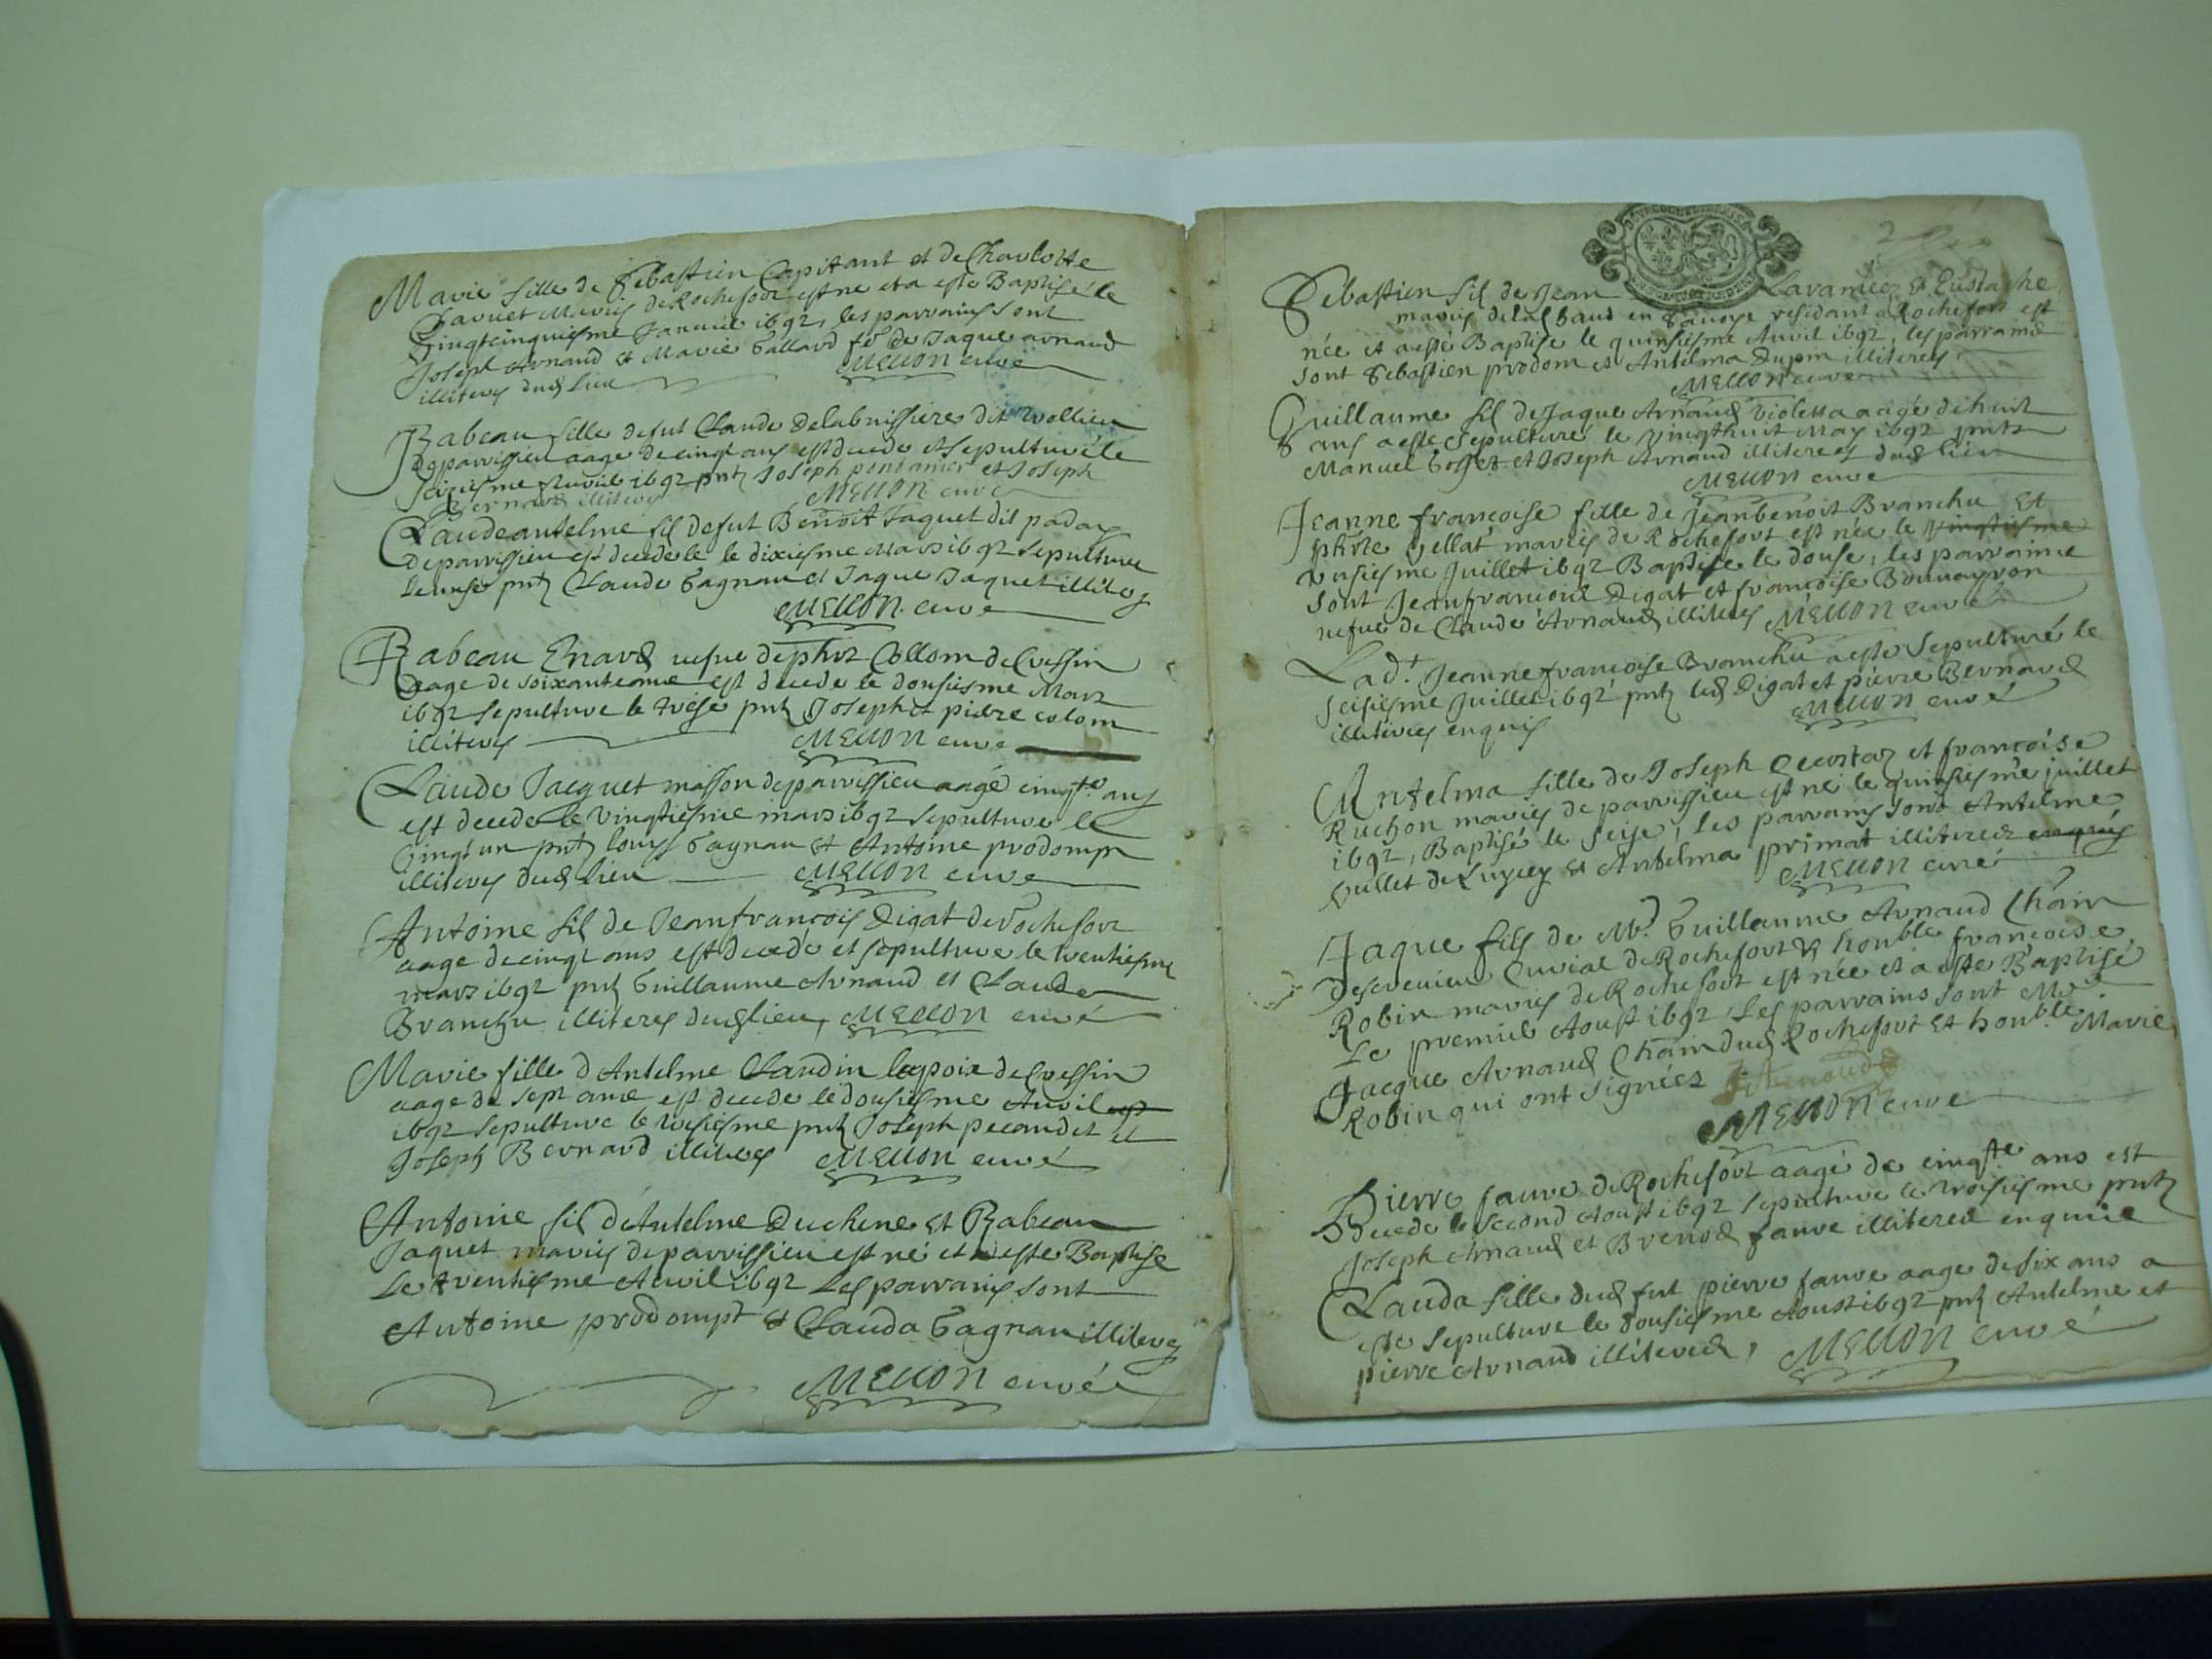 Marie fille de Sebastien Capitant et de Charlotte
mariés de Rochefort est né et a esté Baptisé le
vingtcinquiesme Janvier 1692, les parrains sont
Joseph Arnaud et Marie Gallard fe de Jaque arnaud
illiteres dud lieu MELLON curé
Rabeau fille de fut Claude Delabuissiere dit
de parvissieu aage de cinq ans est decede et sepulturé le
1692 pntz Joseph et Joseph
Bernard illiteres MELLON curé
Claudeantelme fil de fut Benoit Jaquet dit
de parvissieu est decede le dixiesme Mars 1692 sepulture
le unse pntz Claude Gagnau et Jaque Jaquet illiteres
MELLON curé
Rabeau vefve de phze Collom de Cressin
aage de soixante ans est decede le dousiesme Mars
1692 sepulture le trese pntz Joseph et pierre colom
illiteres MELLON curé
Claude Jacquet masson de parvissieu aagé cinqte ans
est decede le vingtiesme mars 1692 sepulture le
vingt un pntz Louys Gagnau et Antoine prodompt
illiteres dud lieu MELLON curé
Antoine fil de Jeanfrançois Digat de Rochefort
aage de cinq ans est decedé et sepulture le trentiesme
mars 1692 pntz Guillaume Arnaud et Claude
Branchu illiteres dud lieu, MELLON curé
Marie fille d Antelme Claudin lapoix de Cressin
aage de sept ans est decede le dousiesme Avril
1692 sepulture le tresiesme pntz Joseph pecaudet et
Joseph Bernard illiteres MELLON curé
Antoine fil d Antelme Duchene et Rabeau
Jaquet mariés de parvissieu est né et a esté Baptise
Le trentiesme Avril 1692 Les parrains sont
Antoine prodompt et Clauda Gagnau illiteres
MELLON curé
2
Sebastien fil de Jean Lavanier et Eustache
mariés en Savoye residant a Rochefort est
née et a esté Baptise le quinsiesme Avril 1692, les parrains
sont Sebastien prodom et Antelma Dupin illiteres
MELLON curé
Guillaume fil de Jaque Arnaud violetta aagé de huit
8 ans a esté sepulturé le vingthuit May 1692 pntz
Manuel et Joseph Arnaud illiteres dud lieu
MELLON curé
Jeanne françoise fille de Jeanbenoit Branchu et
phze Gellat mariés de Rochefort est née le vingtiesme
unsiesme Juillet 1692 Baptise le douse, les parrains
sont Jeanfrançois Digat et françoise Bonnayron
vefve de Claude Arnaud illiteres MELLON curé
Lad.t Jeanne françoise Branchu a esté sepulturé le
seisiesme Juillet 1692 pntz led Digat et pierre Bernard
illiteres enquis MELLON curé
Antelma fille de Joseph Decostaz et françoise
Ruchon mariés de parvissieu est né le quinsiesme juillet
1692, Baptisé le seise, les parrains sont Antelme
Vullet de Luycey et Antelma primat illiteres enquis
MELLON curé
Jaque fils de Mr. Guillaume Arnaud Chãin
Descrenieu Curial de Rochefort et honble françoise
Robin mariés de Rochefort est née et a esté Baptisé
Le premier Aoust 1692, Les parrains sont Mre
Jacque Arnaud Chãin dud Rochefort et honble Marie
Robin qui ont signéez
MELLON curé
Pierre fauve de Rochefort aagé de cinqte ans est
Decede le second Aoust 1692 sepulture le troisiesme pntz
Joseph Arnaud et fauve illiteres enquis
Clauda fille dud fut pierre fauve aage de six ans a
esté sepulture le dousiesme Aoust 1692 pntz Antelme et
pierre Arnaud illiteres, MELLON curé